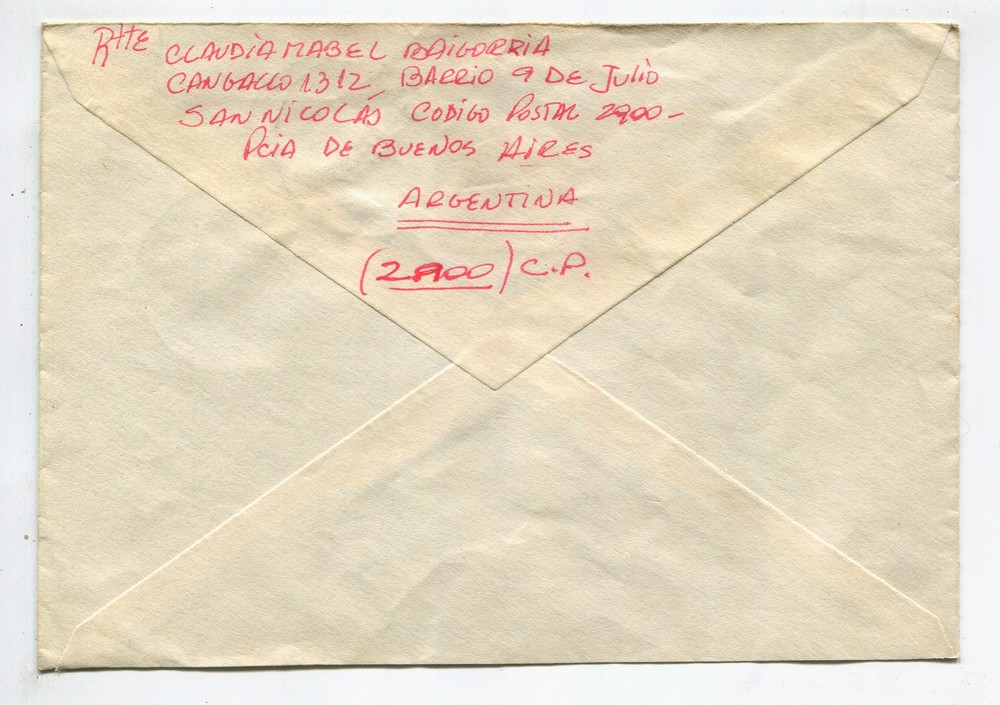 Rtte CLAUDIA MABEL BAIGORRIA
CANGALLO 1312 BARRIO 9 DE Julio
SAN NICOLÁS CODIGO POSTAL 2900-
PCIA DE BUENOS AIRES
ARGENTINA
(2900) C.P.